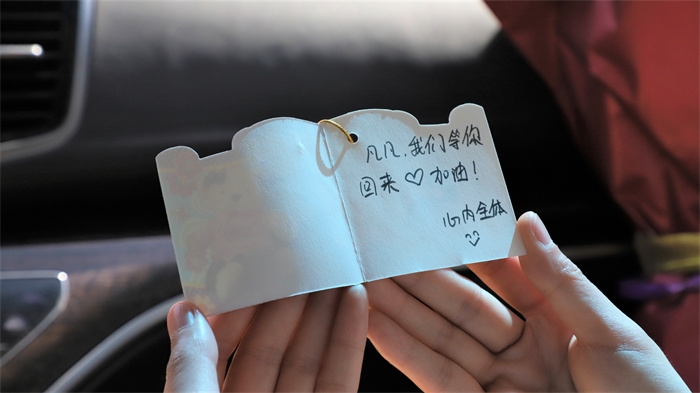 凡凡，我们等你
回来♡加油！
心内全体